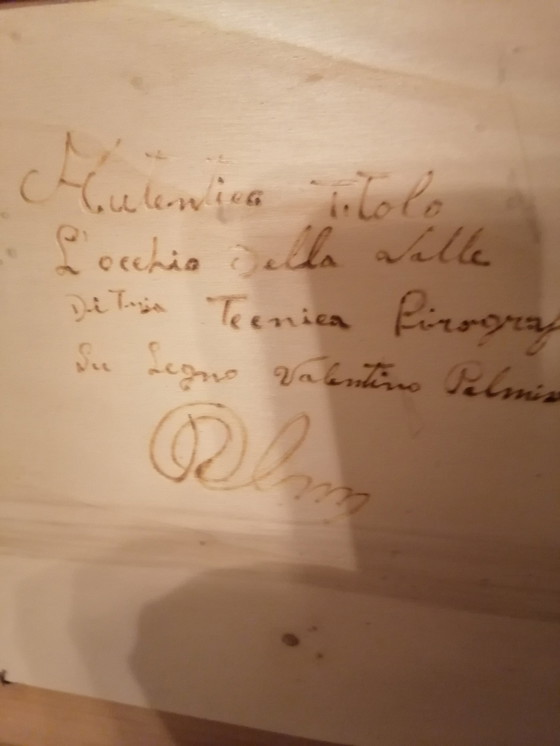 Autentica Titolo
L'occhio Della Valle
Di Tusia Tecnica Pirograf
Su Legno Valentino Palmis